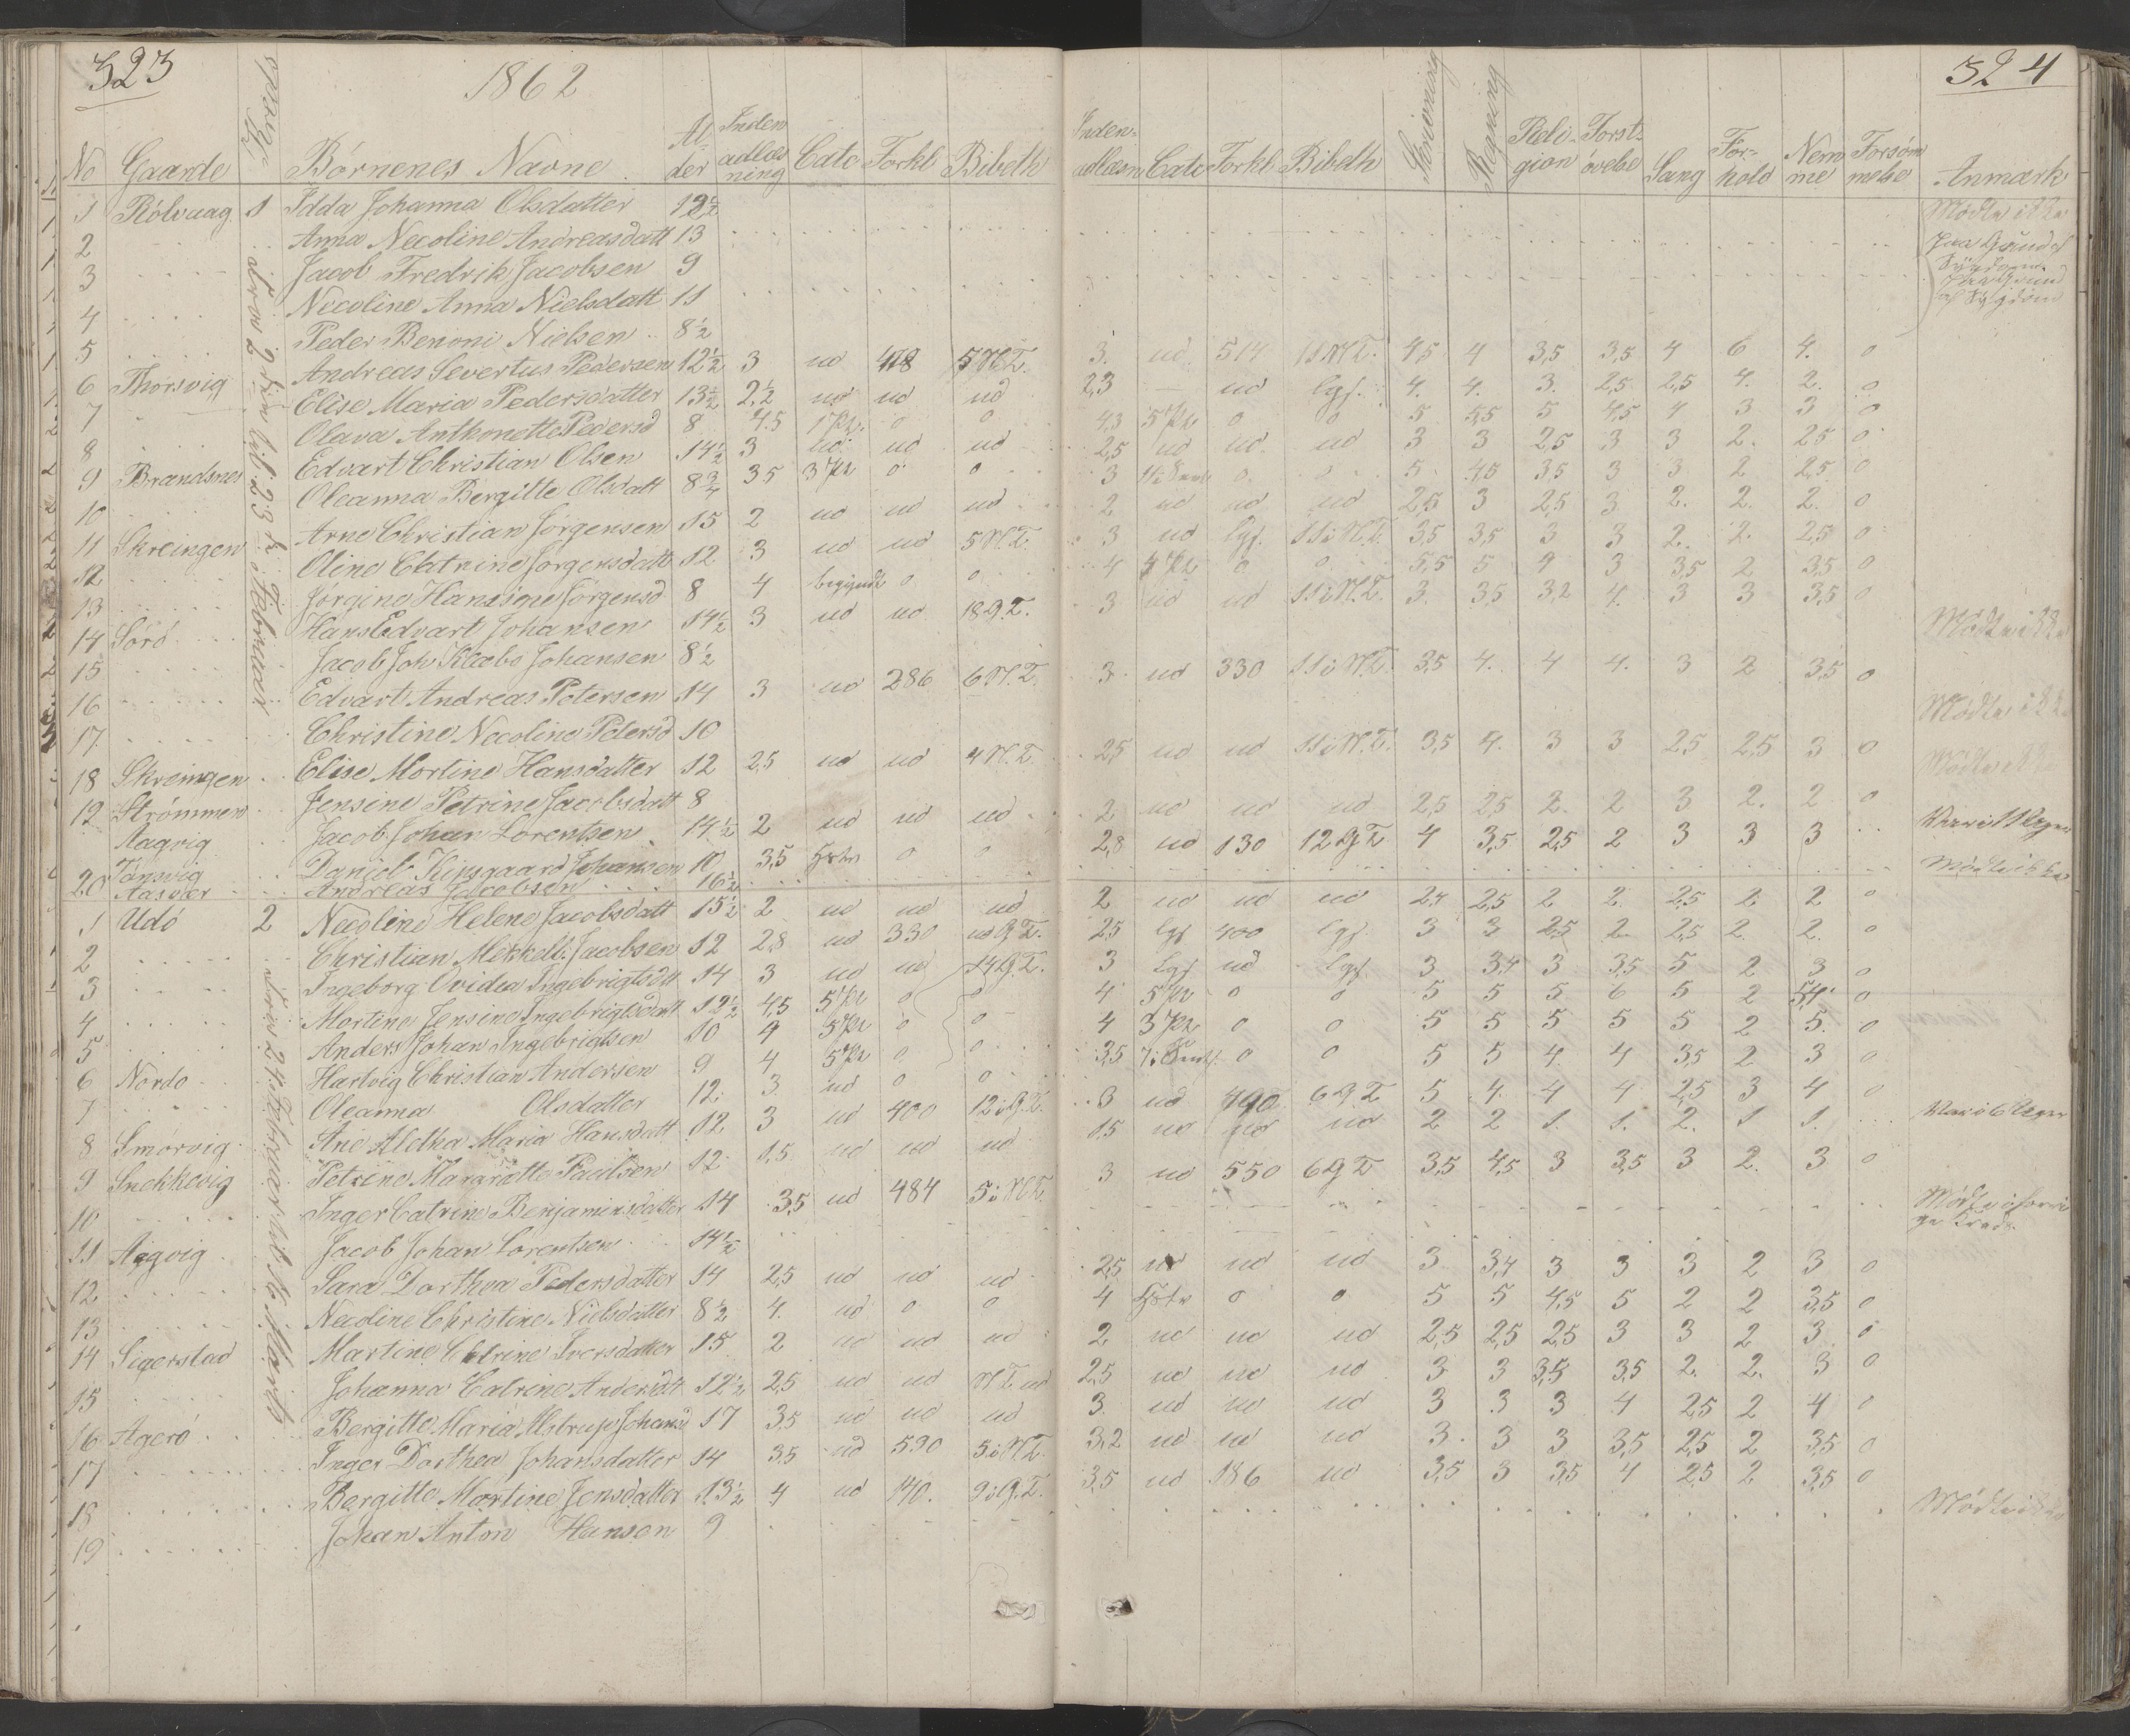 323
1862
No Gaarde Kreds Börnenes Navne Alder Inden adlæsning Cate Forkl Bibelh
1 Rölvaag 1 Idda Johanna Olsdatter 12½
2 Anna Necoline Andreasdatt 13
3 Jacob Fredrik Jacobsen 9
4 Necoline Anna Nielsdatt 11
5 Peder Benoni Nielsen 8½
6 Thorsvig Andreas Severtus Pedersen 12½ 3 ud 418 5 N.T.
7 Elise Maria Pedersdatter 13½ 2,2 ud ud ud
8 Olava Anthonette Pedersd 8 4,5 1 Pr. 0 0
9 Brandsnes Edvart Christian Olsen 14½ 3 ud ud ud
10 Oleanna Bergitte Olsdatt 8¾ 35 3 Pr 0 0
11 Skreingen Arne Christian Jörgensen 15 2 ud ud ud
12 Oline Catrine Jörgensdatt 12 3 ud ud 5 N.T.
13 Jörgine Hansigne Jörgensd 8 4 begynde 0 0
14 Sörö Hans Edvart Johansen 14½ 3 ud ud 18 G.T.
15 Jacob Joh Klæbo Johansen 8½
16 Edvart Andreas Petersen 14 3 ud 286 6 N.T.
17 Christine Necoline Petersd 10
18 Skreingen Elise Mortine Hansdatter 12 2,5 ud ud 4 N.T.
19 Strömmen Jensine Petrine Jacobsdatt 8
Aagvig Jacob Johan Lorentsen 14½ 2 ud ud ud
Tönsvig Daniel Kirsgaard Johansen 10 3,5 0 0
20 Aasvær Andreas Jacobsen 16½
fra 2den til 23 de Februar
1 Udö 2 Necoline Helene Jacobsdatt 15½ 2 ud ud ud
2 Christian Mekkelb. Jacobsen 12 2,8 ud 330 ud G.T.
3 Ingeborg Ovidea Ingebrigtsdtt 14 3 ud ud 14 G.T.
4 Mortine Jensine Ingebrigtsdatt 12½ 4,5 5 Pr 0 0
5 Anders Johan Ingebrigtsen 10 4 5 Pr 0 0
6 Nordö Hartvig Christian Andersen 9 4 5 Pr 0 0
7 Oleanna Olsdatter 12 3 ud 0 0
8 Smörvig Ane Aletha Maria Hansdatt 12 3 ud 400 12 i G.T.
9 Snekkevig Petrine Margrette Paulsen 12 1,5 ud ud ud
10 Inger Catrine Benjaminsdatter 14 3,5 ud 484 5 i N.T.
11 Aagvig Jacob Johan Lorentsen 14½
12 Sara Dorthea Pedersdatter 14 2,5 ud ud ud
13 Necoline Christine Nielsdatter 8½ 4. ud 0 0
14 Sigerstad Martine Catrine Iversdatter 15 2 ud ud ud
15 Johanna Catrine Andersdtt 12½ 2,5 ud ud N.T. ud
16 Agerö Bergitte Maria Alstrup Johansd 17 3,5 ud ud ud
17 Inger Dorthea Johansdatter 14 3,5 ud 590 5 i N.T.
18 Bergitte Martine Jensdatter 13½ 4 ud 140. 9 i G.T.
19 Johan Anton Hansen 9
324
Inden adlæsn Cate Forkl Bibelh Skrivning Regning Religion Forstövelse Sang Forhold Nemme Forsömmelse Anmærk
Mödte ikke
Paa Grund af Sygdom
Paa Grund af Sygdom
3. ud 514 11 N.T. 4,5 4 3,5 3,5 4 6 4. 0
2,3 — ud lgf. 4. 4. 3. 2,5 2,5 4. 2. 0
4,3 5 Pr 0 0 5 5,5 5 4,5 4 3 3 0
2,5 ud ud. ud 3 3 2,5 3 3 2. 2,5 0
3 0. 0 5 4,5 3,5 3 3 2 2,5 0
2 ud ud ud 2,5 3 2,5 3 2. 2. 2. 0
3 ud lgf. 11 i N.T. 3,5 3,5 3 3 2. 2. 2,5 0
4 4 Pr 0 0 5,5 5 4 3 3,5 2 3,5 0
3 ud ud 11 i N.T. 3. 3,5 3,2 4. 3 3 3,5 0
Mödte ikke
3 ud 330 11 i N.T. 3,5 4. 4 4. 3 2 3,5 0
Mödte ikke
2,5 ud ud 11 i N.T. 3,5 4. 3 3 2,5 2,5 3 0
Mödte ikke
2 ud ud ud 2,5 2,5 2. 2 3 2. 2 0
2,8 ud 130 12 G.T. 4 3,5 2,5 2 3 3 3
Mödte ikke
2 ud ud ud 2,4 2,5 2 2. 2,5 2 2 0
2,5 lgf 400 lgf. 3 3 2,5 2. 2,5 2. 2. 0
3 lgf ud lgf. 3 3,4 3 3,5 5 2 3 0
4 5 Pr 0 0 5 5 5 6 5 2 5,4 0
4 3 Pr 0 0 5 5 5 5 5 2 5. 0
3,5 0 0 5 5 4 4 3,5 2 3 0
3 ud 490 6 G.T 5 4. 4 4 2,5 3 4 0
1,5 ud ud ud 2 2 1. 1. 2. 1 1.
3 ud 550 6 G T 3,5 4,5 3 3,5 3 2. 3 0
Mödte i forrige Kreds.
2,5 ud ud ud 3 3,4 3 3 3 2 3 0
4 0 0 5 5 4,5 5 2 2 3,5 0
2 ud ud ud 2,5 2,5 2,5 3 3 2 3 0
2,5 ud ud ud 3 3 3,5 3,5 2. 2. 3 0
3. ud ud ud 3 3 3 4 2,5 2 4 0
3,2 ud ud ud 3. 3 3 3,5 2,5 2 3,5 0
3,5 ud 186 ud 3,5 3 3,5 4 2,5 2 3,5 0
Mödte ikke